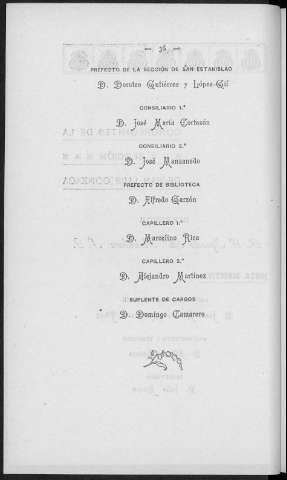 — 36 —
PREFECTO DE LA SECCIÓN DE SAN ESTANISLAO
D. Doroteo Gutiérrez y López-Gil
CONSILIARIO 1.º
D. José María Cortazón
CONSILIARIO 2.º
D. José Manzanedo
PREFECTO DE BIBLIOTECA
D. Alfredo Garzón
CAPILLERO 1.º
D. Marcelino Rica
CAPILLERO 2.º
D. Alejandro Martínez
SUPLENTE DE CARGOS
D. Domingo Camarero